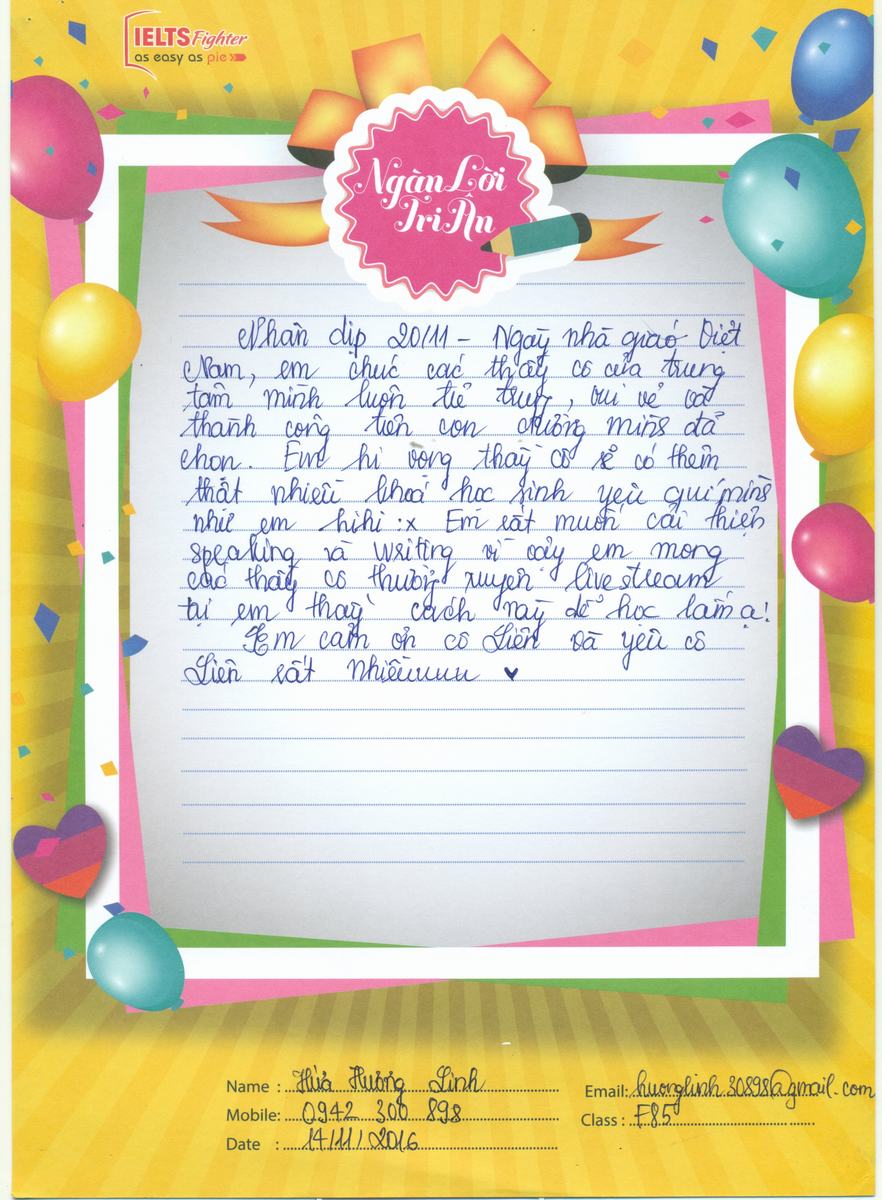 IELTS Fighter
as easy as pie
Ngàn Lời
Tri Ân
Nhân dịp 20/11 - Ngày nhà giáo Việt
Nam, em chúc các thầy cô của trung
tâm mình luôn trẻ trung, vui vẻ và
thành công trên con đường mình đã
chọn. Em hi vọng thầy cô sẽ có thêm
thật nhiều khoá học sinh yêu quí mình
như em hihi :x Em rất muốn cải thiện
speaking và writing vì vậy em mong
các thầy cô thường xuyên livestream
tại em thấy cách này dễ học lắm ạ!
Em cảm ơn cô Liên và yêu cô
Liên rất nhiềuuuuu ♥
Name : Hứa Hương Linh
Email: huonglinh.30898@gmail.com
Mobile: 0942 300 898
Class : F85
Date : 14/11/2016